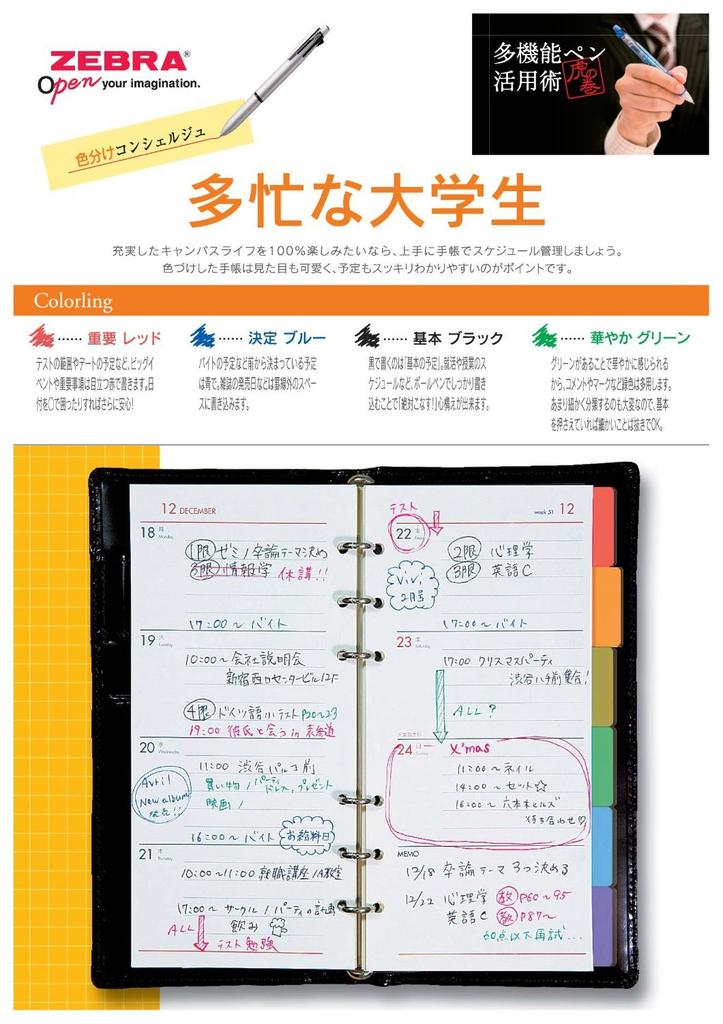 ZEBRA®
Open your imagination.
多機能ペン
活用術
虎の巻
色分けコンシェルジュ
多忙な大学生
充実したキャンパスライフを100%楽しみたいなら、上手に手帳でスケジュール管理しましょう。
色づけした手帳は見た目も可愛く、予定もスッキリわかりやすいのがポイントです。
Colorling
……重要 レッド
テストの範囲やデートの予定など、ビッグイ
ベントや重要事項は目立つ赤で書きます。日
付を〇で囲ったりすればさらに安心!
……決定 ブルー
バイトの予定など前から決まっている予定
は青で。雑誌の発売日などは罫線外のスペー
スに書き込みます。
……基本 ブラック
黒で書くのは「基本の予定」。就活や授業のス
ケジュールなど、ボールペンでしっかり書き
込むことで「絶対こなす!」心構えが出来ます。
……華やか グリーン
グリーンがあることで華やかに感じられる
から、コメントやマークなど緑色は多用します。
あまり細かく分類するのも大変なので、基本
を押さえていれば細かいことは抜きでOK。
12 DECEMBER
18 月
Monday
1限 ゼミ/卒論テーマ決め
3限 情報学 休講!!
17:00〜バイト
19 火
Tuesday
10:00〜会社説明会
新宿西口センタービル12F
4限 ドイツ語小テスト P20〜23
19:00 彼氏と会う in 表参道
20 水
Wednesday
11:00 渋谷パルコ前
買い物/パーティドレス、プレゼント
映画!
Avril
New album
発売!!
16:00〜バイト
お給料日
21 木
Thursday
10:00〜11:00 就職講座/A教室
17:00〜サークル/パーティの計画
飲み
ALL
テスト勉強
week 51 12
テスト
22 金
2限 心理学
3限 英語C
ViVi
2月号
17:00〜バイト
23 土
Saturday
17:00 クリスマスパーティ
渋谷ハチ前集合!
ALL?
24 日
X'mas
11:00〜ネイル
14:00〜セット☆
16:00〜六本木ヒルズ
待ち合わせ♡
MEMO
12/18 卒論テーマ3つ決める
12/22 心理学 教 P60〜95
英語C 教 P87〜
60点以下再試…